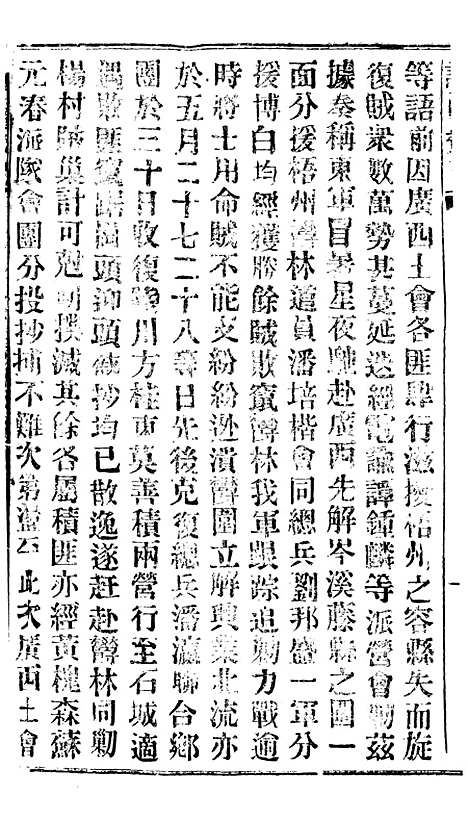 等語前因廣西土會各匪肆行滋擾梧州之容縣失而旋
復賊衆數萬勢甚蔓延迭經電諭譚鍾麟等派營會勦茲
據奏稱東軍冒暑星夜馳赴廣西先解岑溪藤縣之圍一
面分援梧州鬱林道員潘培楷會同總兵劉邦盛一軍分
援博白均經獲勝餘賊敗竄鬱林我軍跟踪追勦力戰逾
時將士用命賊不能支紛紛逃潰鬱圍立解興業北流亦
於五月二十七二十八等日先後克復總兵潘瀛聯合鄉
團於三十日收復陸川方柱東莫善積兩營行至石城適
遇敗匪竄踞 頭 頭 抄均已散逸遂赶赴鬱林同勦
楊村 巢計可剋期撲滅其餘各屬積匪亦經黃槐森蘇
元春派隊會團分投抄捕不難次第 平此次廣西土會